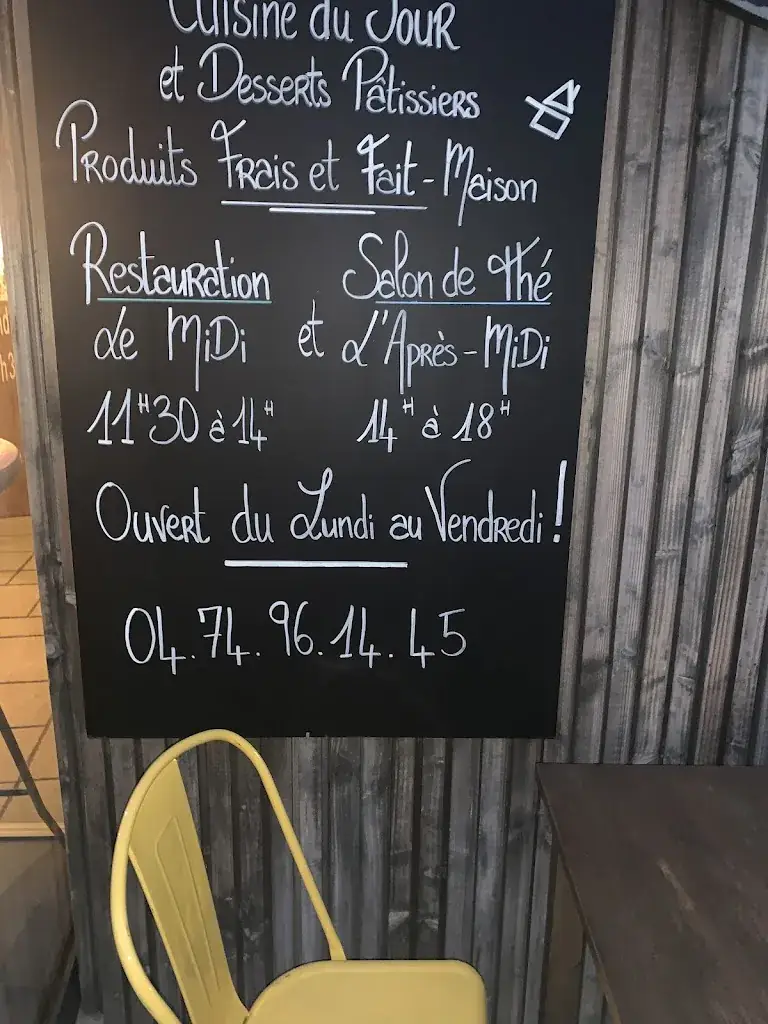 Cuisine du Jour
et Desserts Pâtissiers
Produits Frais et Fait-Maison
Restauration Salon de thé
Le Midi et L'Après-Midi
11H30 à 14H 14H à 18H
Ouvert du Lundi au Vendredi !
04.74.96.14.45